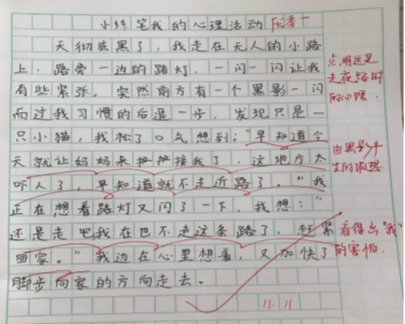 小练笔我的心理活动
天彻底黑了,我走在无人的小路
上.路旁一边的路灯,一闪一闪让我
有些紧张,突然前方有一个黑影一闪
而过我习惯的后退一步,发现只是一
只小猫,我松了口气想到:“早知道今
天就让妈妈来接我了,这地方太
吓人了,早知道就不走近路了。”我
正在想着路灯又闪了一下,我想:“
还是走吧我在也不走这条路了,赶紧
回家。”我边在心里想着,又加快了
脚步向家的方向走去。
点明这是
走夜路时
的心理.
由黑影产
生的联想
看得出“我”
的害怕.
11.11